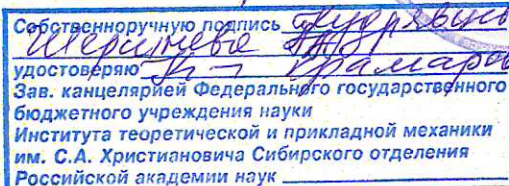 Собственноручную подпись
удостоверяю
Зав. канцелярией Федерального государственного
бюджетного учреждения науки
Института теоретической и прикладной механики
им. С.А. Христиановича Сибирского отделения
Российской академии наук